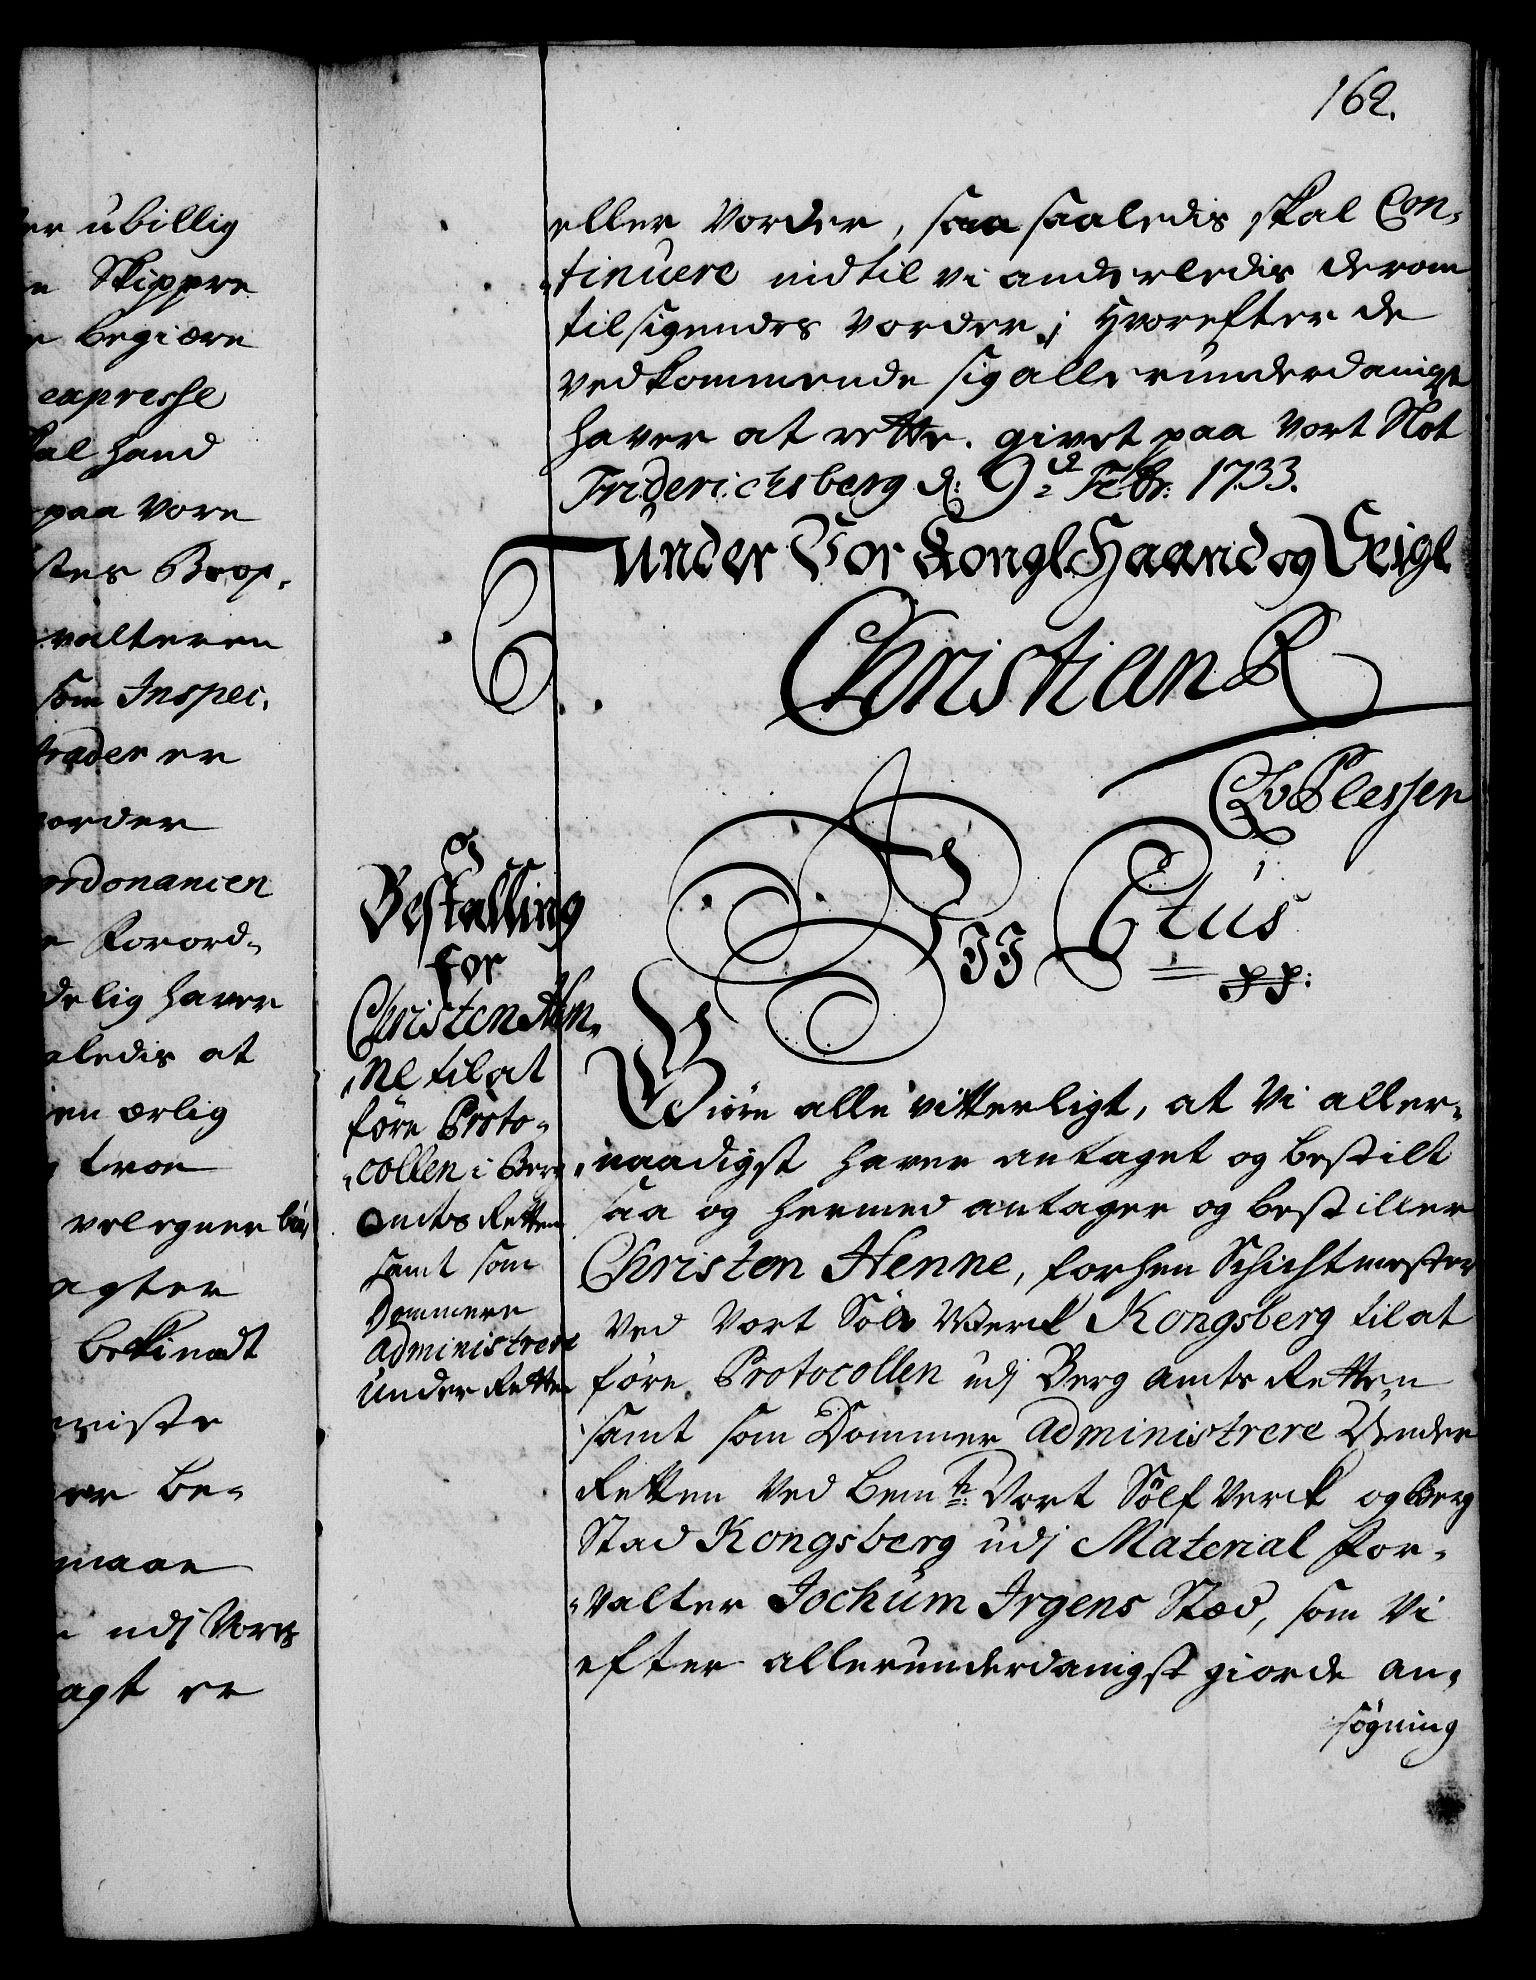 162.
er ubillig
Skippre
begiære
expresse
al hand
paa vore
stes Brop,
valteren
som Inspec,
trader er
vorder
ordonancen
Forord-
delig haver
aledis at
en ærlig
troe
vel egner bu,
agter
bekiendt
miste
be-
maae
udj Vores
agt er
eller vorder, saa saaledis skal Con-
-tinuere indtil vi anderledis derom
tilsigendes vorder; Hvorefter de
vedkommende sig allerunderdanigst
haver at rette. givet paa Vort Slot
Friderichsberg d: 9de Febr: 1733.
Under Vor Kongl Haand og Seigl
Christian R
CAvPlessen
Bestalling
for
Christen Hen-
-ne til at
føre Proto-
-collen i Berg
Amts Retten
samt som
Dommere
administrere
under Retten
Vii Ctus
pp:
Giøre alle vitterligt, at Vi aller-
-naadigst haver antaget og bestilt
saa og hermed antager og bestiller
Christen Henne, forhen Schichtmester
ved Vort Sølv Werck Kongsberg til at
føre Protocollen udj Berg Amts Retten
samt som Dommer administrere Under
Retten ved bemte Vort Sølf Verck og Berg
Stad Kongsberg udj Material For-
-valter Jochum Irgens Stæd, som Vi
efter allerunderdanigst giorde an-
søgning